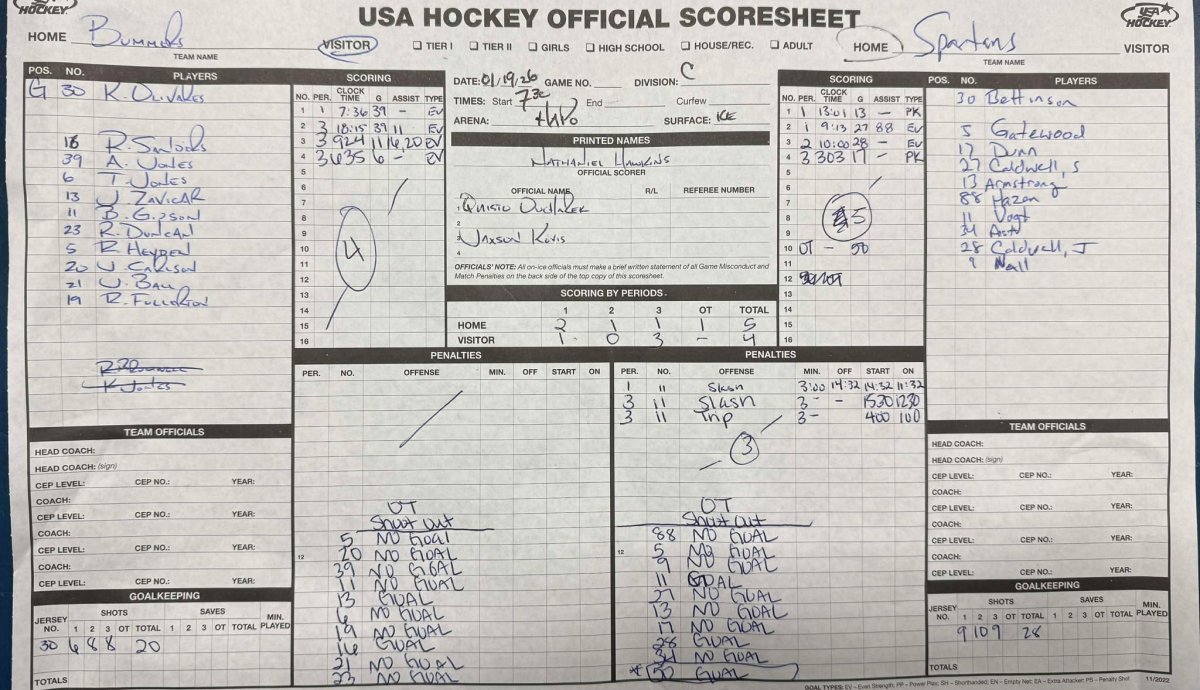 HOCKEY
USA HOCKEY OFFICIAL SCORESHEET
USA HOCKEY
HOME Bummers VISITOR
TEAM NAME
☐ TIER I ☐ TIER II ☐ GIRLS ☐ HIGH SCHOOL ☐ HOUSE/REC. ☐ ADULT
HOME Spartans VISITOR
TEAM NAME
POS. NO. PLAYERS
G 30 K. Olivares
16
39 A. Jones
6 T. Jones
13 J. Zavicar
11 B. Gipson
23 R. Duncan
5 R. Heyden
20 J. Carlson
21 J. Ball
19 R. Fullerton
K. Jones
SCORING
NO. PER. CLOCK TIME G ASSIST TYPE
1 1 7:36 39 - EV
2 3 18:15 39 11 EV
3 3 924 11 16,20 EV
4 3 635 6 - EV
5
6
7
8
9
10
11
12
13
14
15
16
4
DATE: 01/19.26 GAME NO. DIVISION: C
TIMES: Start 730 End Curfew
ARENA: SURFACE: ICE
PRINTED NAMES
Nathaniel Hawkins
OFFICIAL SCORER
OFFICIAL NAME R/L REFEREE NUMBER
1
2
3 Jaxson Kovis
4
OFFICIALS' NOTE: All on-ice officials must make a brief written statement of all Game Misconduct and
Match Penalties on the back side of the top copy of this scoresheet.
SCORING BY PERIODS
1 2 3 OT TOTAL
HOME 2 1 1 1 5
VISITOR 1 0 3 - 4
SCORING
NO. PER. CLOCK TIME G ASSIST TYPE
1 1 13:01 13 - PK
2 1 9:13 27 88 EV
3 2 10:00 28 -
4 3 303 17 - PK
5
6
7
8
9
10 OT - 50
11
12
13
14
15
16
5
POS. NO. PLAYERS
30 Bettinson
5 Gatewood
17 Dunn
27 Caldwell, S
13 Armstrong
88 Hazon
11 Vogt
34
28 Caldwell, J
9 Nall
PENALTIES
PER. NO. OFFENSE MIN. OFF START ON
OT
Shoot out
5 NO GOAL
12 20 NO GOAL
39 NO GOAL
11 NO GOAL
13 GOAL
6 NO GOAL
19 NO GOAL
16 GOAL
21 NO GOAL
23 NO GOAL
PENALTIES
PER. NO. OFFENSE MIN. OFF START ON
1 11 Slash 3:00 14:32 14:32 11:32
3 11 Slash 3- - 1530 1230
3 11 Trip 3- 400 100
3
OT
Shoot out
88 NO GOAL
12 5 NO GOAL
9 NO GOAL
11 GOAL
27 NO GOAL
13 NO GOAL
17 NO GOAL
28 GOAL
34 NO GOAL
* 50 GOAL
TEAM OFFICIALS
HEAD COACH:
HEAD COACH: (sign)
CEP LEVEL: CEP NO.: YEAR:
COACH:
CEP LEVEL: CEP NO.: YEAR:
COACH:
CEP LEVEL: CEP NO.: YEAR:
COACH:
CEP LEVEL: CEP NO.: YEAR:
GOALKEEPING
JERSEY NO. SHOTS SAVES MIN. PLAYED
1 2 3 OT TOTAL 1 2 3 OT TOTAL
30 6 8 8 20
TOTALS
TEAM OFFICIALS
HEAD COACH:
HEAD COACH: (sign)
CEP LEVEL: CEP NO.: YEAR:
COACH:
CEP LEVEL: CEP NO.: YEAR:
COACH:
CEP LEVEL: CEP NO.: YEAR:
COACH:
CEP LEVEL: CEP NO.: YEAR:
GOALKEEPING
JERSEY NO. SHOTS SAVES MIN. PLAYED
1 2 3 OT TOTAL 1 2 3 OT TOTAL
9 10 9 28
TOTALS
GOAL TYPES: EV – Even Strength; PP – Power Play; SH – Shorthanded; EN – Empty Net; EA – Extra Attacker; PS – Penalty Shot 11/2022